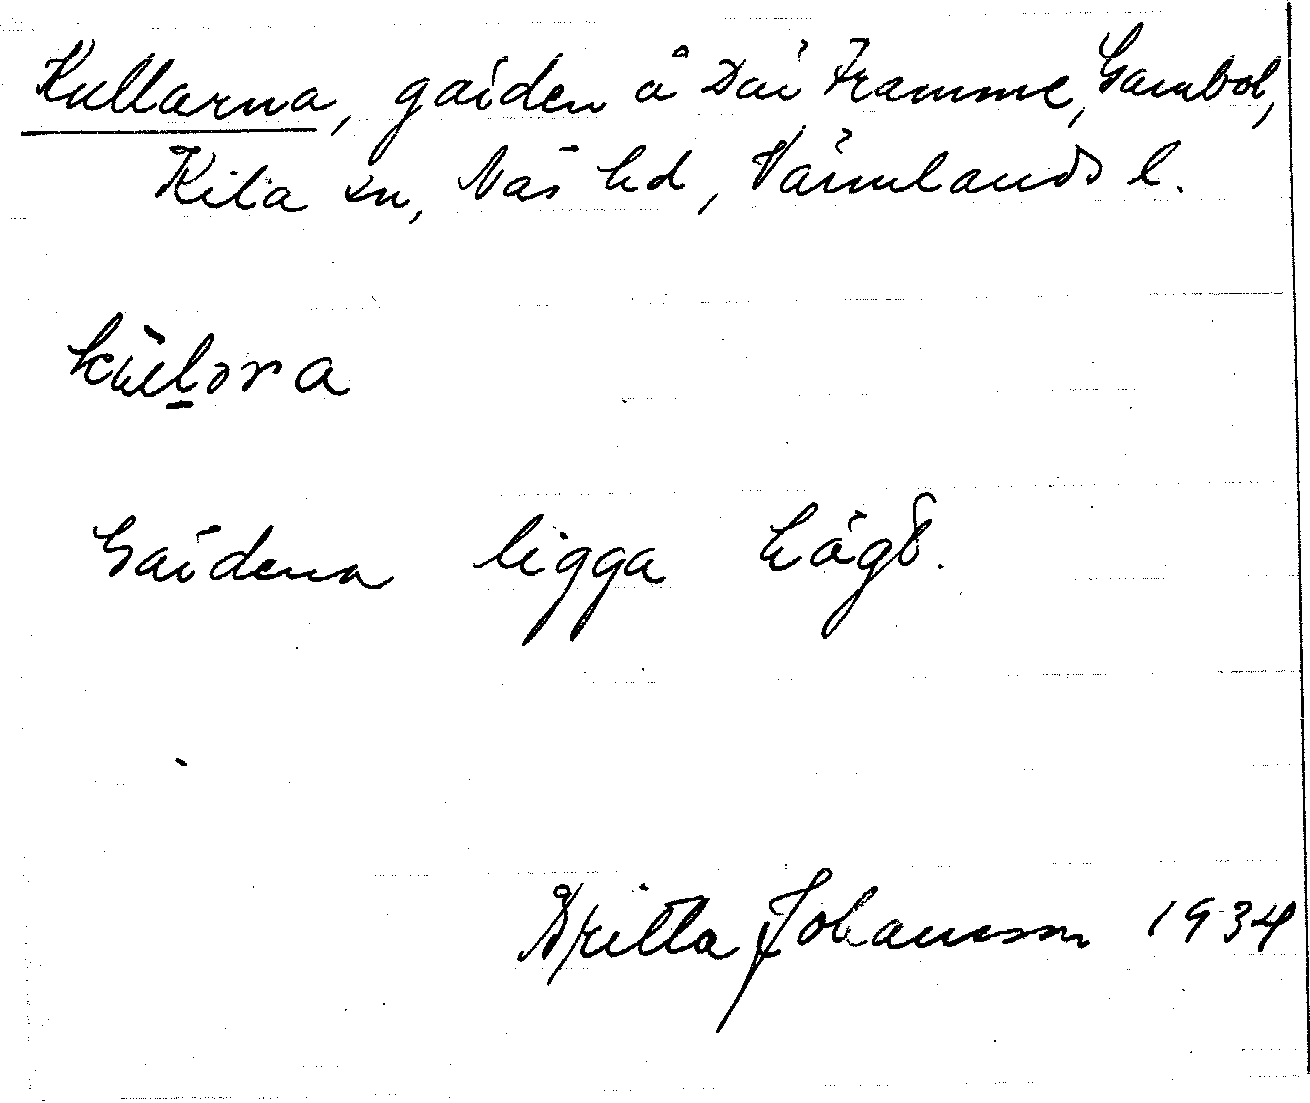 Kullarna, gården å Där Framme, Gambol,
Kila sn, Näs hd, Värmlands l.
kulȯra
Gårdena ligga högt.
Britta Johansson 1934